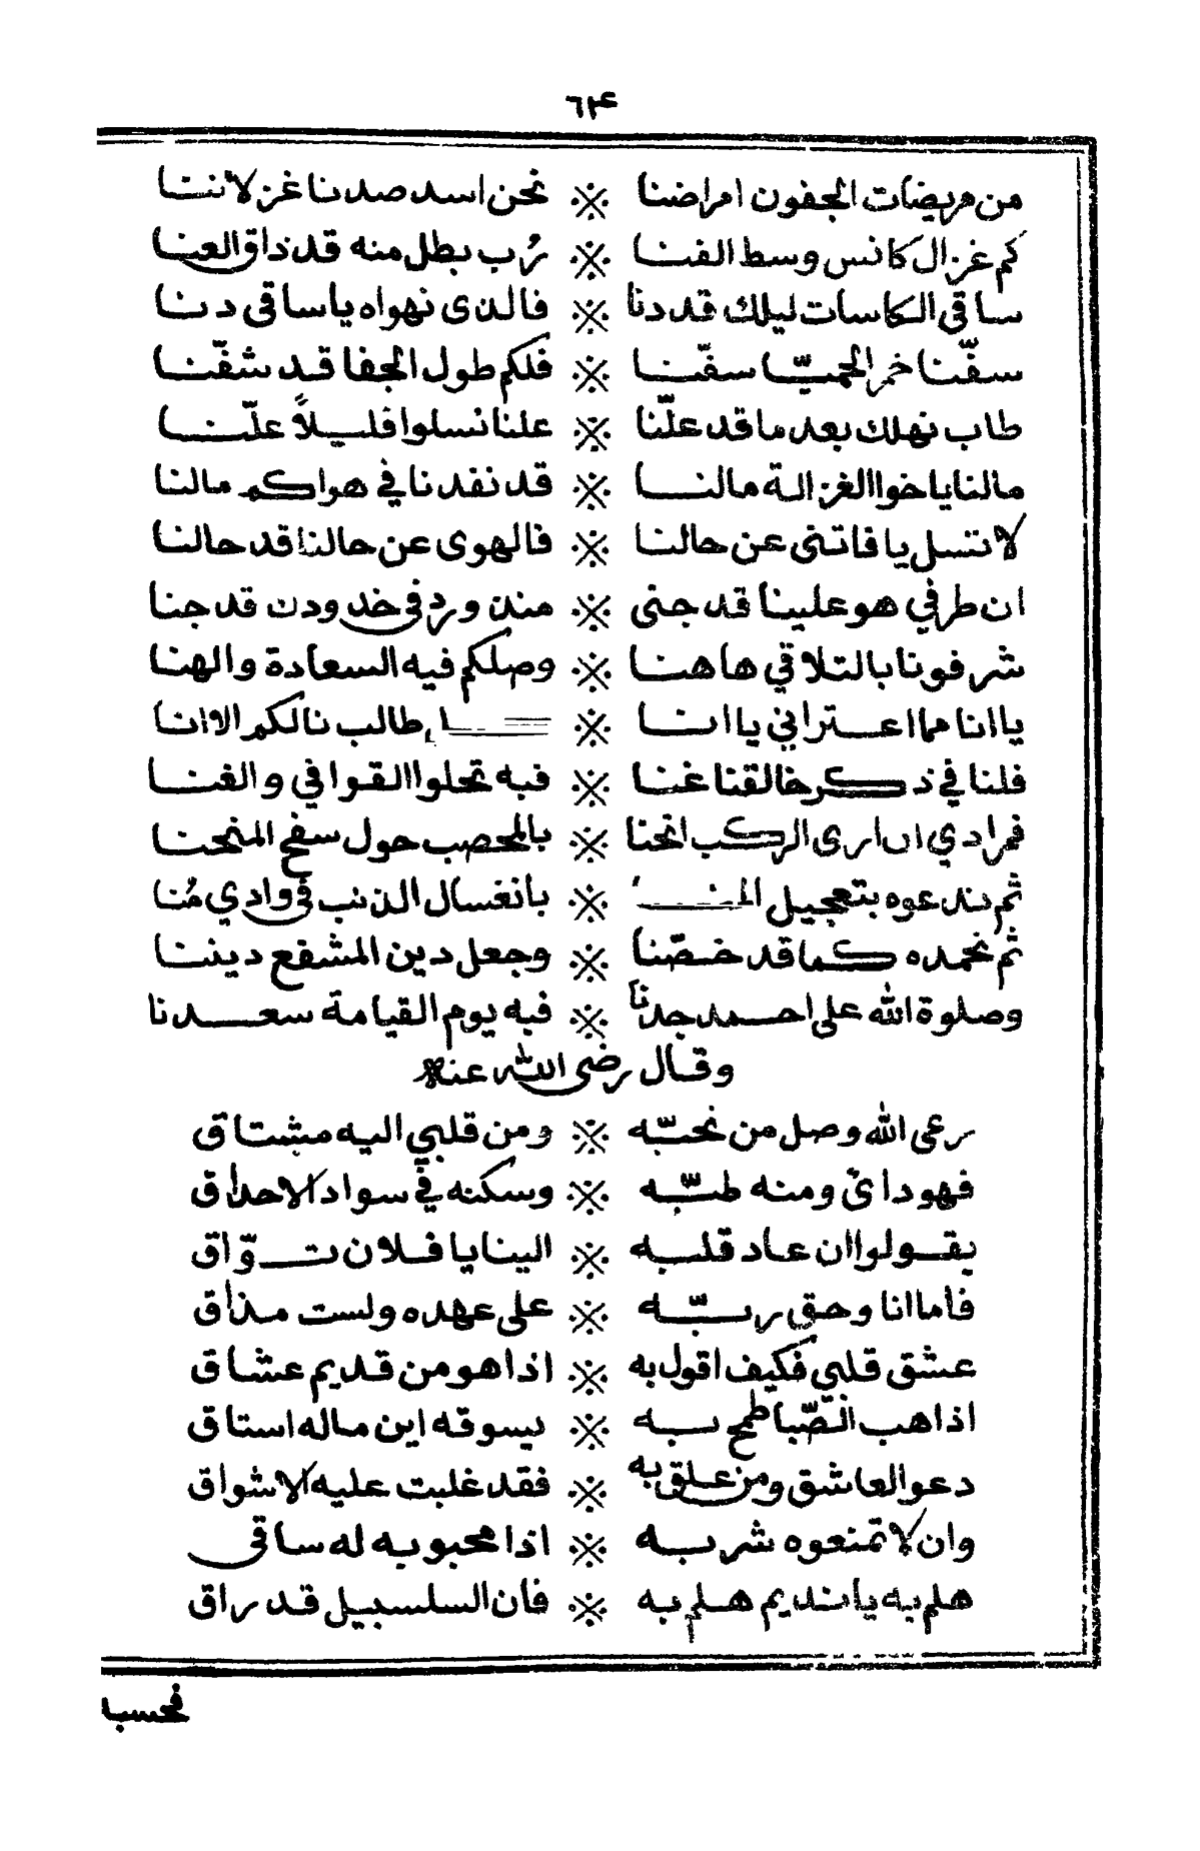 ٦٢٤
من مريضات الجفون امراضنا ※ نحن اسد صدنا غزلاننا
كم غزال كانس وسط الفنا ※ رُب بطل منه قد ذاق العنا
ساقي الكاسات ليلك قد دنا ※ فالذى نهواه ياساقى دنا
سقّنا خمر الحميّا سقّنا ※ فلكم طول الجفا قد شفّنا
طاب نهلك بعد ما قد علّنا ※ علنا نسلوا قليلاً علّنا
مالنا ياخوا الغزالة مالنا ※ قد نفدنا في هواكم مالنا
لا تسل يا فاتنى عن حالنا ※ فالهوى عن حالنا قد حالنا
ان طرفي هو علينا قد جنى ※ منذ ورد فى خدودن قد جنا
شرفونا بالتلاقي هاهنا ※ وصلكم فيه السعادة والهنا
يا انا مما اعتراني يا انا ※ طالب نالكم الا انا
فلنا في ذكر خالقنا غنا ※ فبه تحلوا القوافي والغنا
فمرادي ان ارى الركب انحنا ※ بالمحصب حول سفح المنحنا
ثم ندعوه بتعجيل المنا ※ بانغسال الذنب في وادي مُنا
ثم نحمده كما قد خصّنا ※ وجعل دين المشفع ديننا
وصلوة الله على احمد جدنا ※ فبه يوم القيامة سعدنا
وقال رضى الله عنه
رعى الله وصل من نحبّه ※ ومن قلبي اليه مشتاق
فهو دائ ومنه طبّه ※ وسكنه في سواد الاحداق
يقولوا ان عاد قلبه ※ الينا يا فلان توّاق
فاما انا وحق ربّه ※ على عهده ولست مذاق
عشق قلبي فكيف اقول به ※ اذا هو من قديم عشاق
اذا هب الصّبا طمح به ※ يسوقه اين ماله استاق
دعو العاشق ومن علق به ※ فقد غلبت عليه الاشواق
وان لا تمنعوه شربه ※ اذا محبوبه له ساقى
هلم به يا نديم هلم به ※ فان السلسبيل قد راق
فحسبا